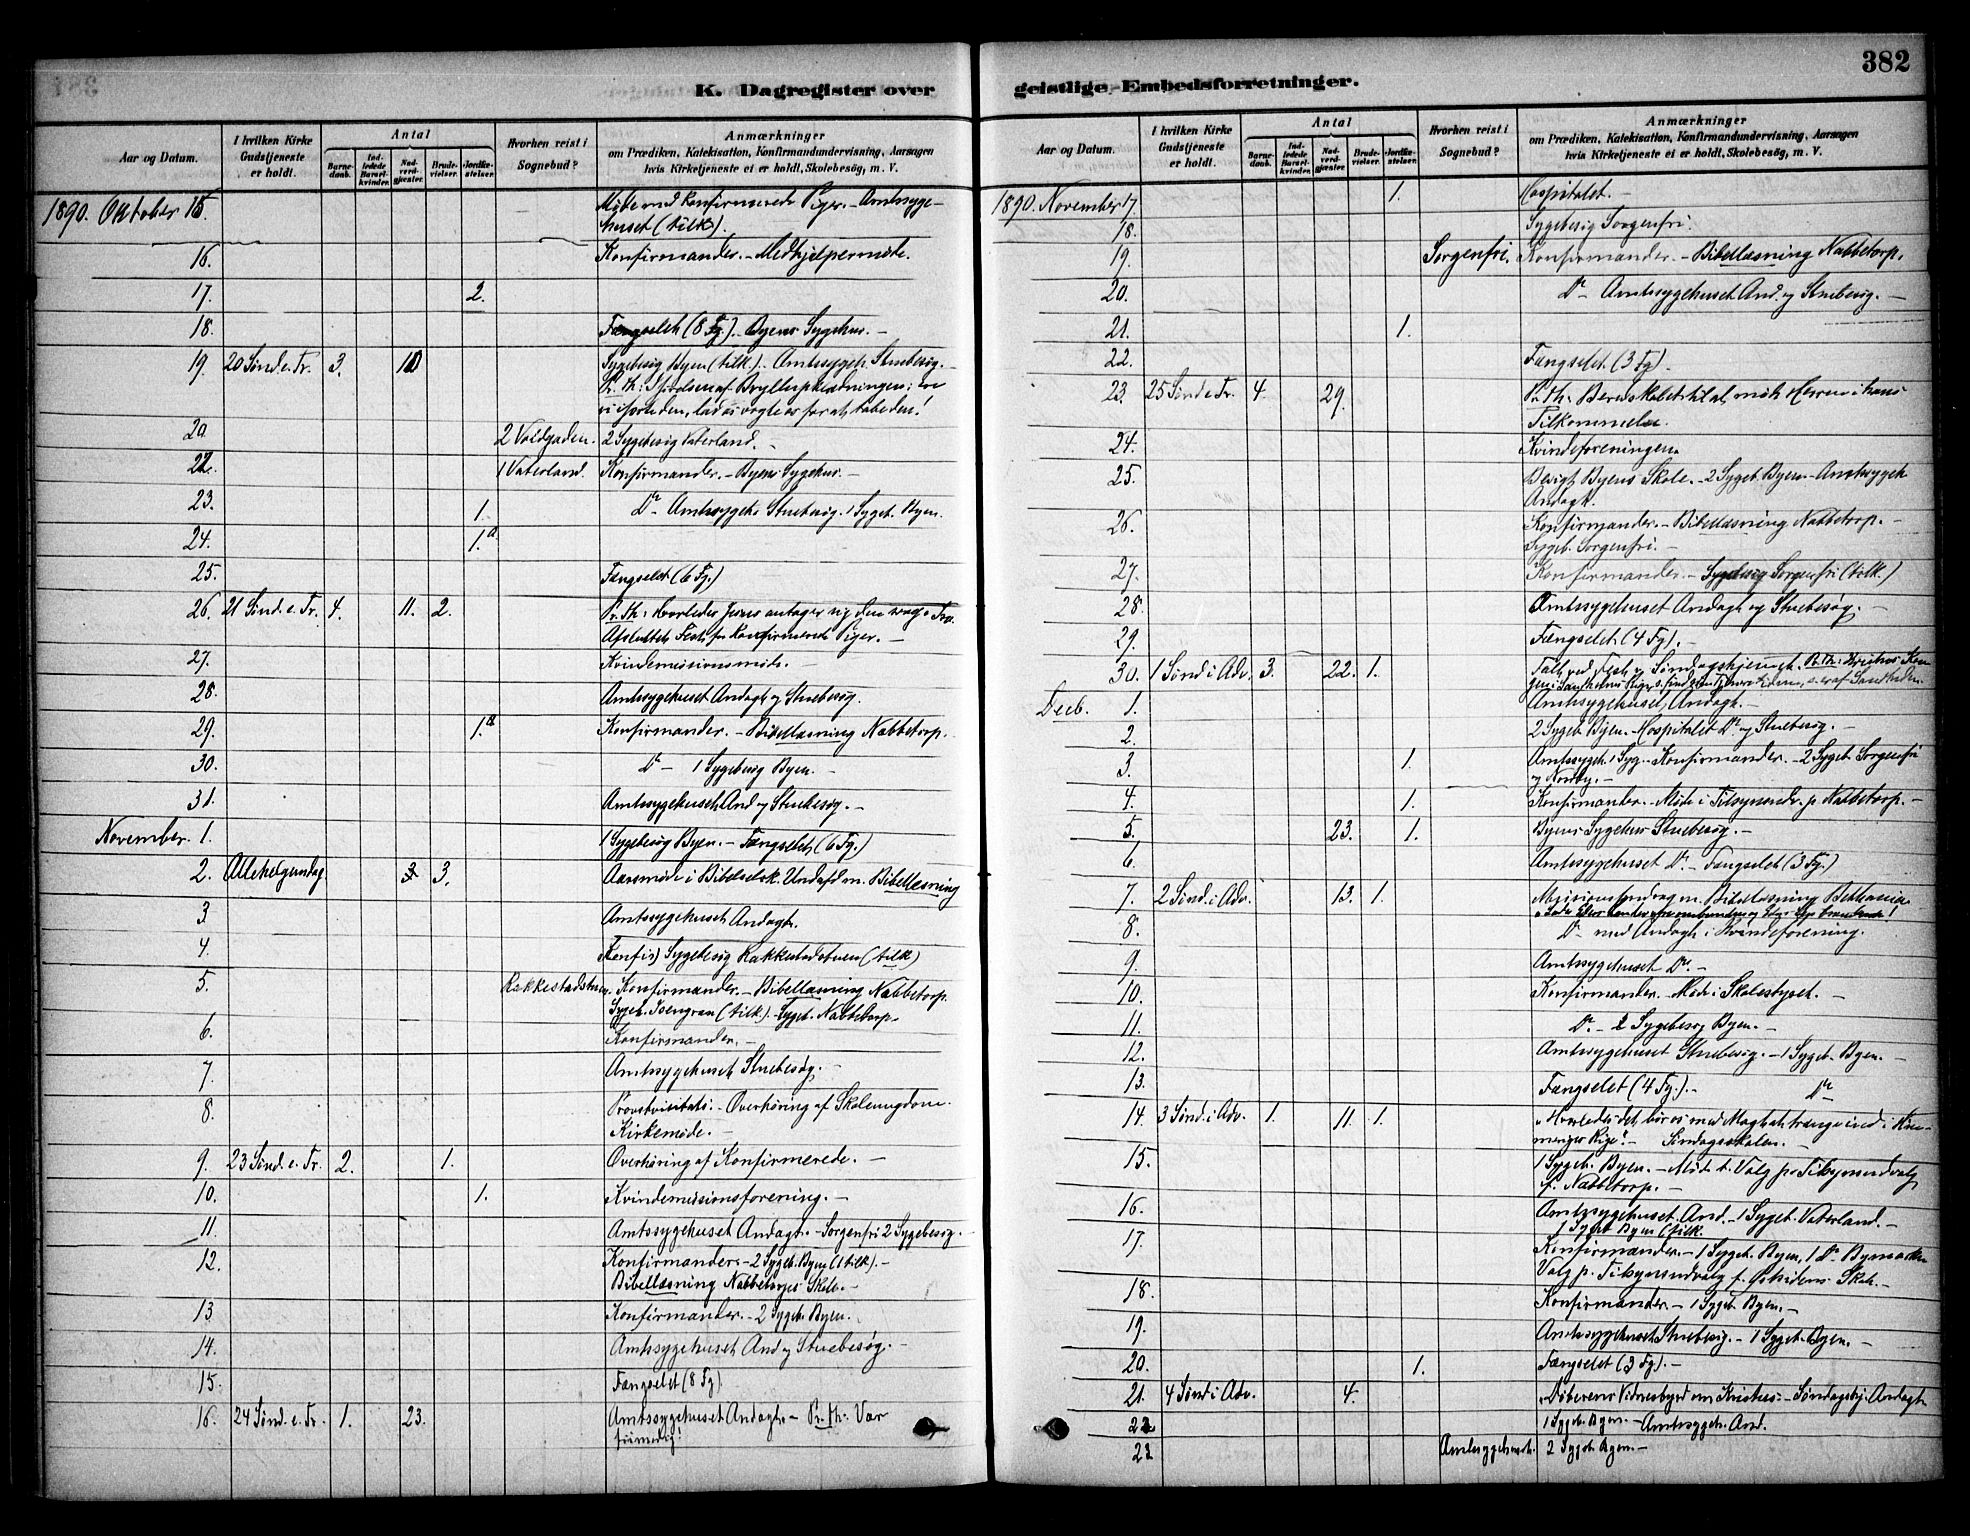 382
K. Dagregister over
Aar og Datum.
I hvilken Kirke Gudstjeneste er holdt.
Antal
Barnedaab.
Indledede Barselkvinder.
Nadverdgjester.
Brudevielser.
Jordfæstelser.
Hvorhen reist i Sognebud?
Anmærkninger
om Prædiken, Katekisation, Konfirmandundervisning, Aarsagen
hvis Kirketjeneste ei er holdt, Skolebesøg, m. V.
1890. Oktober 15. Møde med Konfirmerede Piger. - Amtssyge-
huset (tilk).
16. Konfirmander. - Medhjelpermøde.
17. 2.
18. Fængselet (8 Fg). - Byens Sygehus. -
19. 20 Sønd. e. Tr. 3. Sygebesøg Byen (tilk). - Amtssygeh. Stuebesøg. -
20. 2 Voldgaden. 2 Sygebesøg Vaterland. -
22. 1 Vaterland. Konfirmander. - Byens Sygehus. -
23. 1. Do - Amtssygeh. Stuebesøg. 1 Sygeb. Byen.
24. 1.
25. Fængselet (6 Fg.)
26. 21 Sønd. e. Tr. 4. 11. 2. Pr. th: Hvorledes Jesus antager sig den svage Tro.
Afsluttet Fest for Konfirmerede Piger. -
27. Kvindemissionsmøde. -
28. Amtssygehuset Andagt og Stuebesøg.
29. 1. Konfirmander. - Bibellæsning Nabbetorp.
30. Do - 1 Sygebesøg Byen. -
31. Amtssygehuset And. og Stuebesøg. -
November. 1. 1 Sygebesøg Byen. - Fængselet (6 Fg.)
2. Allehelgensdag. 3 3. Aarsmøde i Bibelselsk. Undafd m. Bibellæsning
3. Amtssygehuset Andagt.
4. (Konfir.) Sygebesøg Rakkestadstuen (tilk)
5. Rakkestadstuen. Konfirmander. - Bibellæsning Nabbetorp.
Sygeb. Isengran (tilk). - Sygeb. Nabbetorp.
6. Konfirmander. -
7. Amtssygehuset Stuebesøg. -
8. Provstvisitats. - Overhøring af Skoleungdom.
Kirkemøde. -
9. 23 Sønd. e. Tr. 2. 1. Overhøring af Konfirmerede. -
10. 1. Kvindemissionsforening. -
11. Amtssygehuset Andagt. - Sorgenfri 2 Sygebesøg. -
12. Konfirmander. - 2 Sygeb. Byen (1 tilk). -
Bibellæsning Nabbetorps Skole. -
13. Konfirmander. - 2 Sygeb. Byen.
14. Amtssygehuset And. og Stuebesøg. -
15. Fængselet (8 Fg)
16. 24 Sønd. e. Tr. 1. 23. Amtssygehuset Andagt. - Pr. th: Vær
geistlige Embedsforretninger.
Aar og Datum.
I hvilken Kirke Gudstjeneste er holdt.
Antal
Barnedaab.
Indledede Barselkvinder.
Nadverdgjester.
Brudevielser.
Jordfæstelser.
Hvorhen reist i Sognebud?
Anmærkninger
om Prædiken, Katekisation, Konfirmandundervisning, Aarsagen
hvis Kirketjeneste ei er holdt, Skolebesøg, m. V.
1890. November 17. 1. Hospitalet. -
18. Sygebesøg Sorgenfri.
19. Sorgenfri. Konfirmander. - Bibellæsning Nabbetorp.
20. Do - Amtssygehuset And. og Stuebesøg. -
21. 1.
22. Fængselet (3 Fg).
23. 25 Sønd. e. Tr. 4. 29. Pr. th: Beredskabet til at møde Herren i hans
Tilkommelse.
24. Kvindeforeningen.
25. Besøgt Byens Skole. - 2 Sygeb. Byen. - Amtssygeh.
Andagt.
26. Konfirmander. - Bibellæsning Nabbetorp. -
Sygeb. Sorgenfri. -
27. Konfirmander. - Sygebesøg Sorgenfri (tilk.)
28. Amtssygehuset Andagt og Stuebesøg. -
29. Fængselet (4 Fg). -
30. 1 Sønd. i Adv. 3. 22. 1. Tale ved Fest i Søndagshjemmet.
Decb. 1. Amtssygehuset Andagt. -
2. 2 Sygeb. Byen. - Hospitalet Do og Stuebesøg. -
3. 1. Amtssygeh. 1 Syg. - Konfirmander. - 2 Sygeb. Sorgenfri
4. 1. Konfirmander. - Møde i Tilsynsudv. p. Nabbetorp. -
5. 23. 1. Byens Sygehus Stuebesøg. -
6. Amtssygehuset Do - Fængselet (3 Fg.)
7. 2 Sønd. i Adv. 13. 1. Missionsforedrag m. Bibellæsning Bethania
8. Do med Andagt i Kvindeforening.
9. Amtssygehuset Do -
10. Konfirmander. - Møde i Skolestyret. -
11. Do - 2 Sygebesøg Byen. -
12. Amtssygehuset Stuebesøg. - 1 Sygeb. Byen. -
13. Fængselet (4 Fg.). - Do
14. 3 Sønd. i Adv. 1. 11. 1. Søndagsskolen. -
15. 1 Sygeb. Byen. - Møde t. Valg p. Tilsynsudvalg
f. Nabbetorp. -
16. Amtssygehuset And. - 1 Sygeb. Vaterland. -
1 Sygeb. Byen (tilk.
17. Konfirmander. - 1 Sygeb. Byen, 1 Do Bymarken
Valg p. Tilsynsudvalg f. Østsidens Skole. -
18. Konfirmander. - 1 Sygeb. Byen. -
19. Amtssygehuset Stuebesøg. - 1 Sygeb. Byen. -
20. 1. Fængselet (3 Fg). -
21. 4 Sønd. i Adv. 4. Døberens Vidnesbyrd om Kristus. - Søndagshj. Andagt
22 1 Sygeb. Byen. - Amtssygeh. And.
23 Amtssygehuset. 2 Sygeb. Byen. -